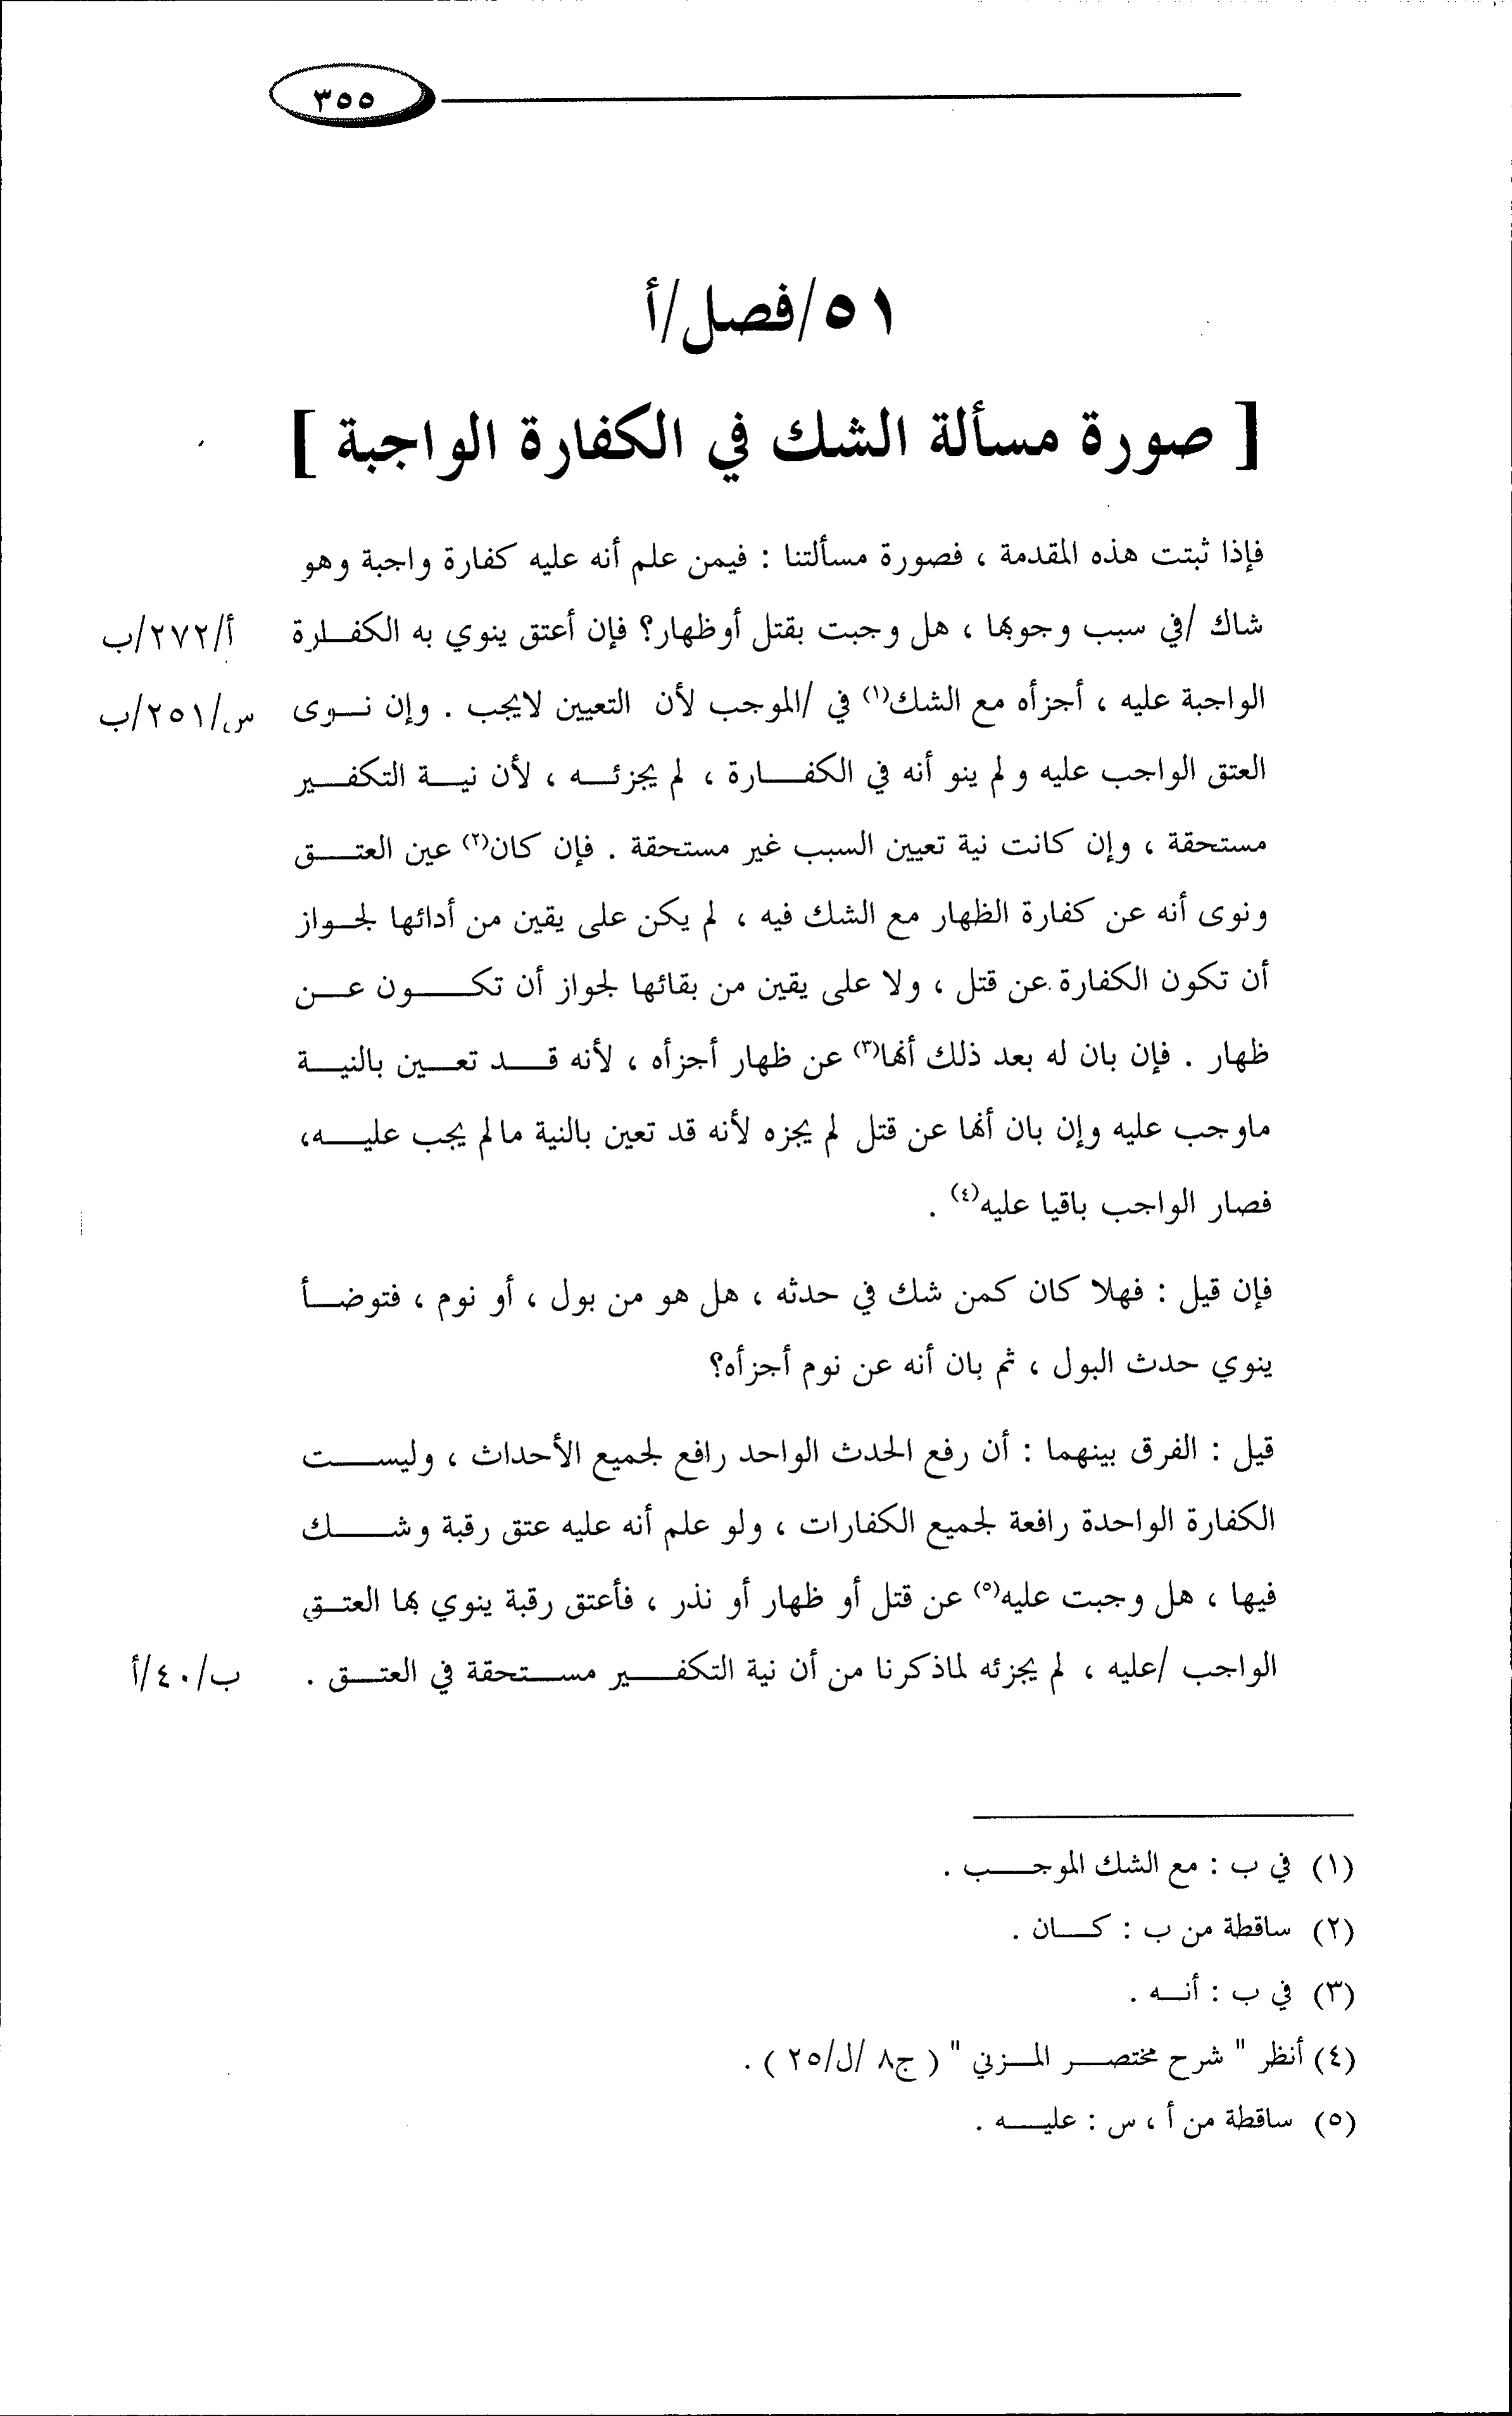 ٣٥٥
٥١/فصل/أ
[ صورة مسألة الشك في الكفارة الواجبة ]
فإذا ثبتت هذه المقدمة ، فصورة مسألتنا : فيمن علم أنه عليه كفارة واجبة وهو
شاك /في سبب وجوبها ، هل وجبت بقتل أوظهار؟ فإن أعتق ينوي به الكفارة أ/٢٧٢/ب
الواجبة عليه ، أجزأه مع الشك(١) في /الموجب لأن التعيين لايجب . وإن نوى س/٢٥١/ب
العتق الواجب عليه ولم ينو أنه في الكفارة ، لم يجزئه ، لأن نية التكفير
مستحقة ، وإن كانت نية تعيين السبب غير مستحقة . فإن كان(٢) عين العتق
ونوى أنه عن كفارة الظهار مع الشك فيه ، لم يكن على يقين من أدائها لجواز
أن تكون الكفارة عن قتل ، ولا على يقين من بقائها لجواز أن تكون عن
ظهار . فإن بان له بعد ذلك أنها(٣) عن ظهار أجزأه ، لأنه قد تعين بالنية
ماوجب عليه وإن بان أنها عن قتل لم يجزه لأنه قد تعين بالنية مالم يجب عليه،
فصار الواجب باقيا عليه(٤) .
فإن قيل : فهلا كان كمن شك في حدثه ، هل هو من بول ، أو نوم ، فتوضأ
ينوي حدث البول ، ثم بان أنه عن نوم أجزأه؟
قيل : الفرق بينهما : أن رفع الحدث الواحد رافع لجميع الأحداث ، وليست
الكفارة الواحدة رافعة لجميع الكفارات ، ولو علم أنه عليه عتق رقبة وشك
فيها ، هل وجبت عليه(٥) عن قتل أو ظهار أو نذر ، فأعتق رقبة ينوي بها العتق
الواجب /عليه ، لم يجزئه لماذكرنا من أن نية التكفير مستحقة في العتق . ب/٤٠/أ
(١) في ب : مع الشك الموجب .
(٢) ساقطة من ب : كان .
(٣) في ب : أنه .
(٤) أنظر " شرح مختصر المزني " ( ج٨ /ل/٢٥ ) .
(٥) ساقطة من أ ، س : عليه .